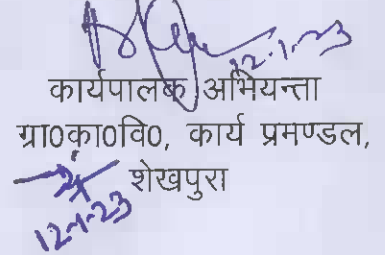 12-1-23
कार्यपालक अभियन्ता
ग्रा0का0वि0, कार्य प्रमण्डल,
शेखपुरा
12-1-23